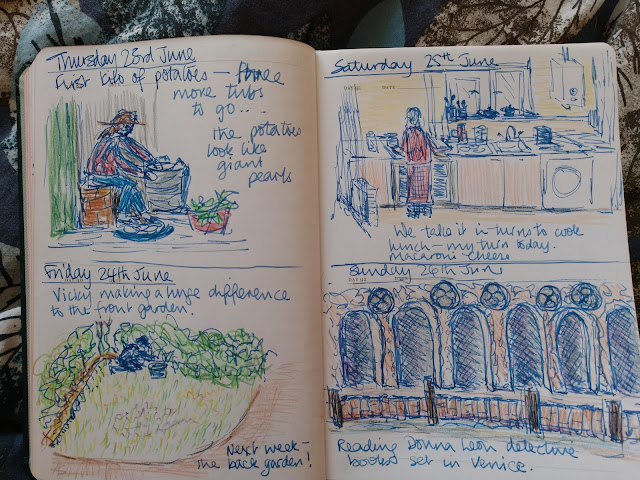 Thursday 23rd June
First kilo of potatoes – three
more tubs
to go...
the potatoes
look like
giant
pearls
Friday 24th June
Vicky making a huge difference
to the front garden.
Next week –
the back garden!
Saturday 25th June
We take it in turns to cook
lunch – my turn today.
Macaroni cheese
Sunday 26th June
Reading Donna Leon detective
books set in Venice.